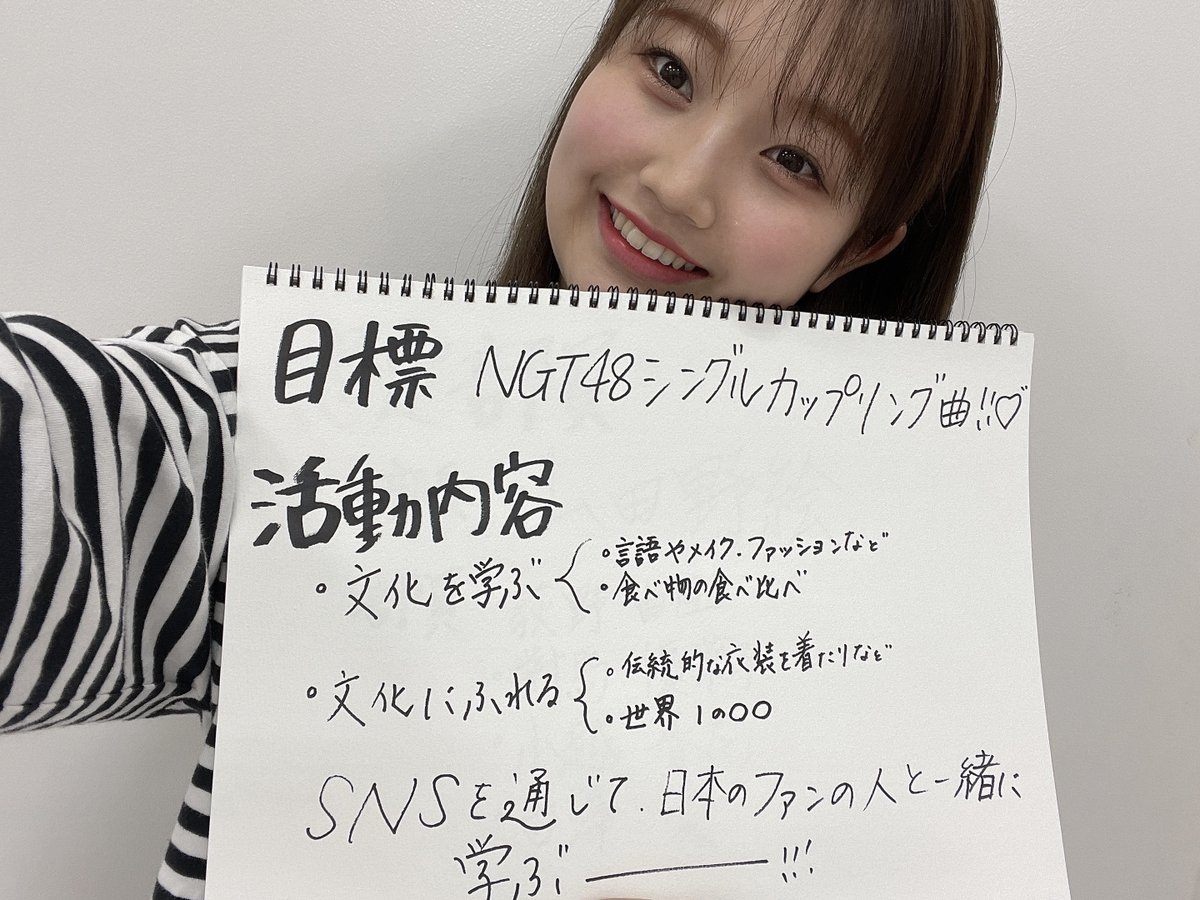 目標 NGT48シングルカップリング曲!!♡
活動内容
・文化を学ぶ
・言語やメイク.ファッションなど
・食べ物の食べ比べ
・文化にふれる
・伝統的な衣装を着たりなど
・世界1の〇〇
SNSを通じて.日本のファンの人と一緒に
学ぶー!!!